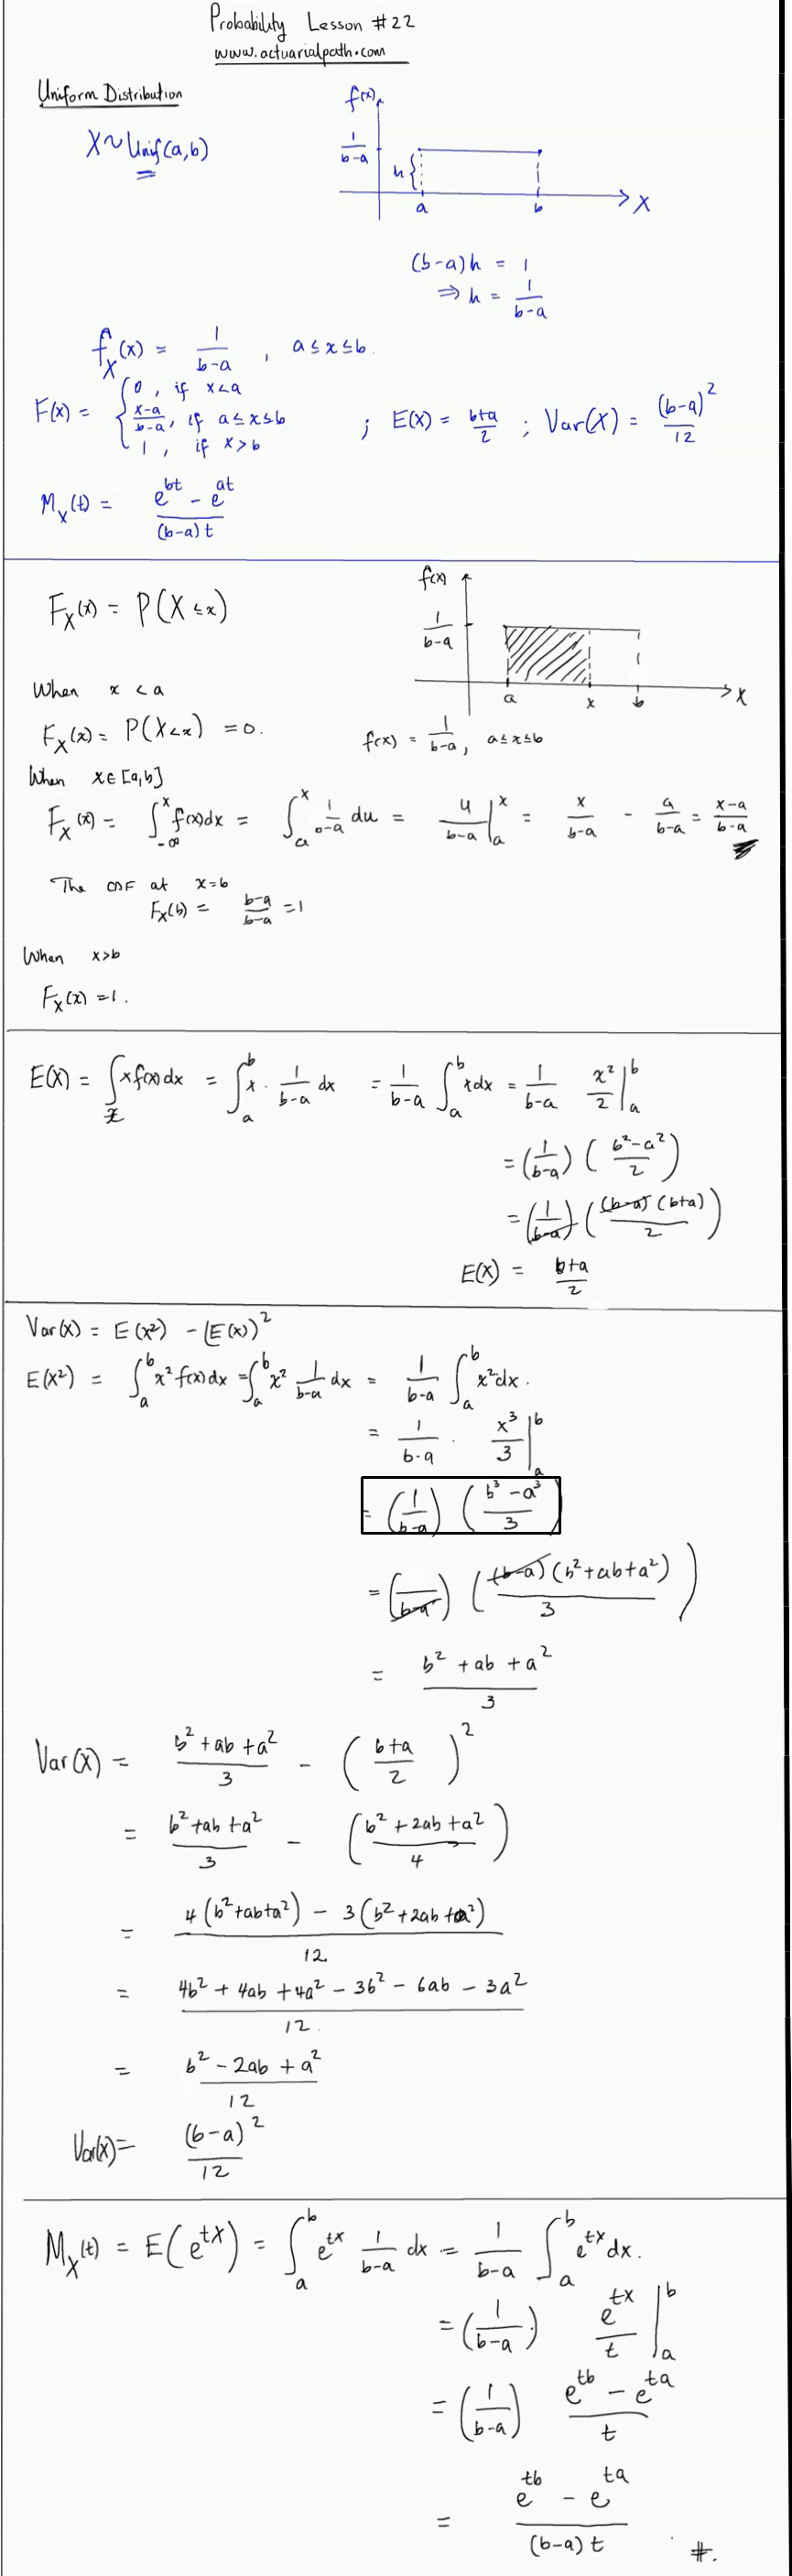 Probability Lesson #22
www.actuarialpath.com
Uniform Distribution
X ~ Unif(a,b)
f(x)
1/(b-a)
h {
a b X
(b-a)h = 1
⇒ h = 1/(b-a)
f_X(x) = 1/(b-a) , a ≤ x ≤ b.
F(x) = { 0 , if x<a
(x-a)/(b-a), if a ≤ x ≤ b
1 , if x > b
; E(X) = (b+a)/2 ; Var(X) = (b-a)^2/12
M_X(t) = (e^bt - e^at)/((b-a) t)
F_X(x) = P(X ≤ x)
f(x)
1/(b-a)
a x b X
f(x) = 1/(b-a), a ≤ x ≤ b
When x < a
F_X(x) = P(X<x) = 0.
When x ∈ [a,b]
F_X(x) = ∫_{-∞}^x f(x)dx = ∫_a^x 1/(b-a) du = u/(b-a) |_a^x = x/(b-a) - a/(b-a) = (x-a)/(b-a)
The CDF at x=b
F_X(b) = (b-a)/(b-a) = 1
When x>b
F_X(x) = 1.
E(X) = ∫_x x f(x) dx = ∫_a^b x · 1/(b-a) dx = 1/(b-a) ∫_a^b x dx = 1/(b-a) x^2/2 |_a^b
= (1/(b-a)) ((b^2-a^2)/2)
= (1/(b-a)) ((b-a)(b+a)/2)
E(X) = (b+a)/2
Var(X) = E(X^2) - (E(X))^2
E(X^2) = ∫_a^b x^2 f(x) dx = ∫_a^b x^2 1/(b-a) dx = 1/(b-a) ∫_a^b x^2 dx.
= 1/(b-a) · x^3/3 |_a^b
= (1/(b-a)) ((b^3 - a^3)/3)
= (1/(b-a)) ((b-a)(b^2+ab+a^2)/3)
= (b^2 + ab + a^2)/3
Var(X) = (b^2 + ab + a^2)/3 - ((b+a)/2)^2
= (b^2 + ab + a^2)/3 - ((b^2 + 2ab + a^2)/4)
= (4(b^2+ab+a^2) - 3(b^2+2ab+a^2))/12
= (4b^2 + 4ab + 4a^2 - 3b^2 - 6ab - 3a^2)/12.
= (b^2 - 2ab + a^2)/12
Var(X) = (b-a)^2/12
M_X(t) = E(e^tX) = ∫_a^b e^tx 1/(b-a) dx = 1/(b-a) ∫_a^b e^tx dx.
= (1/(b-a)) e^tx/t |_a^b
= (1/(b-a)) (e^tb - e^ta)/t
= (e^tb - e^ta)/((b-a) t) #.